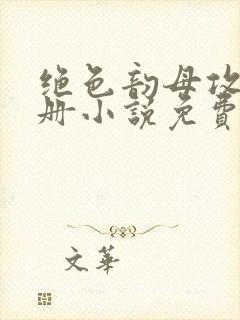 绝色韵母攻
册小说免費
文華